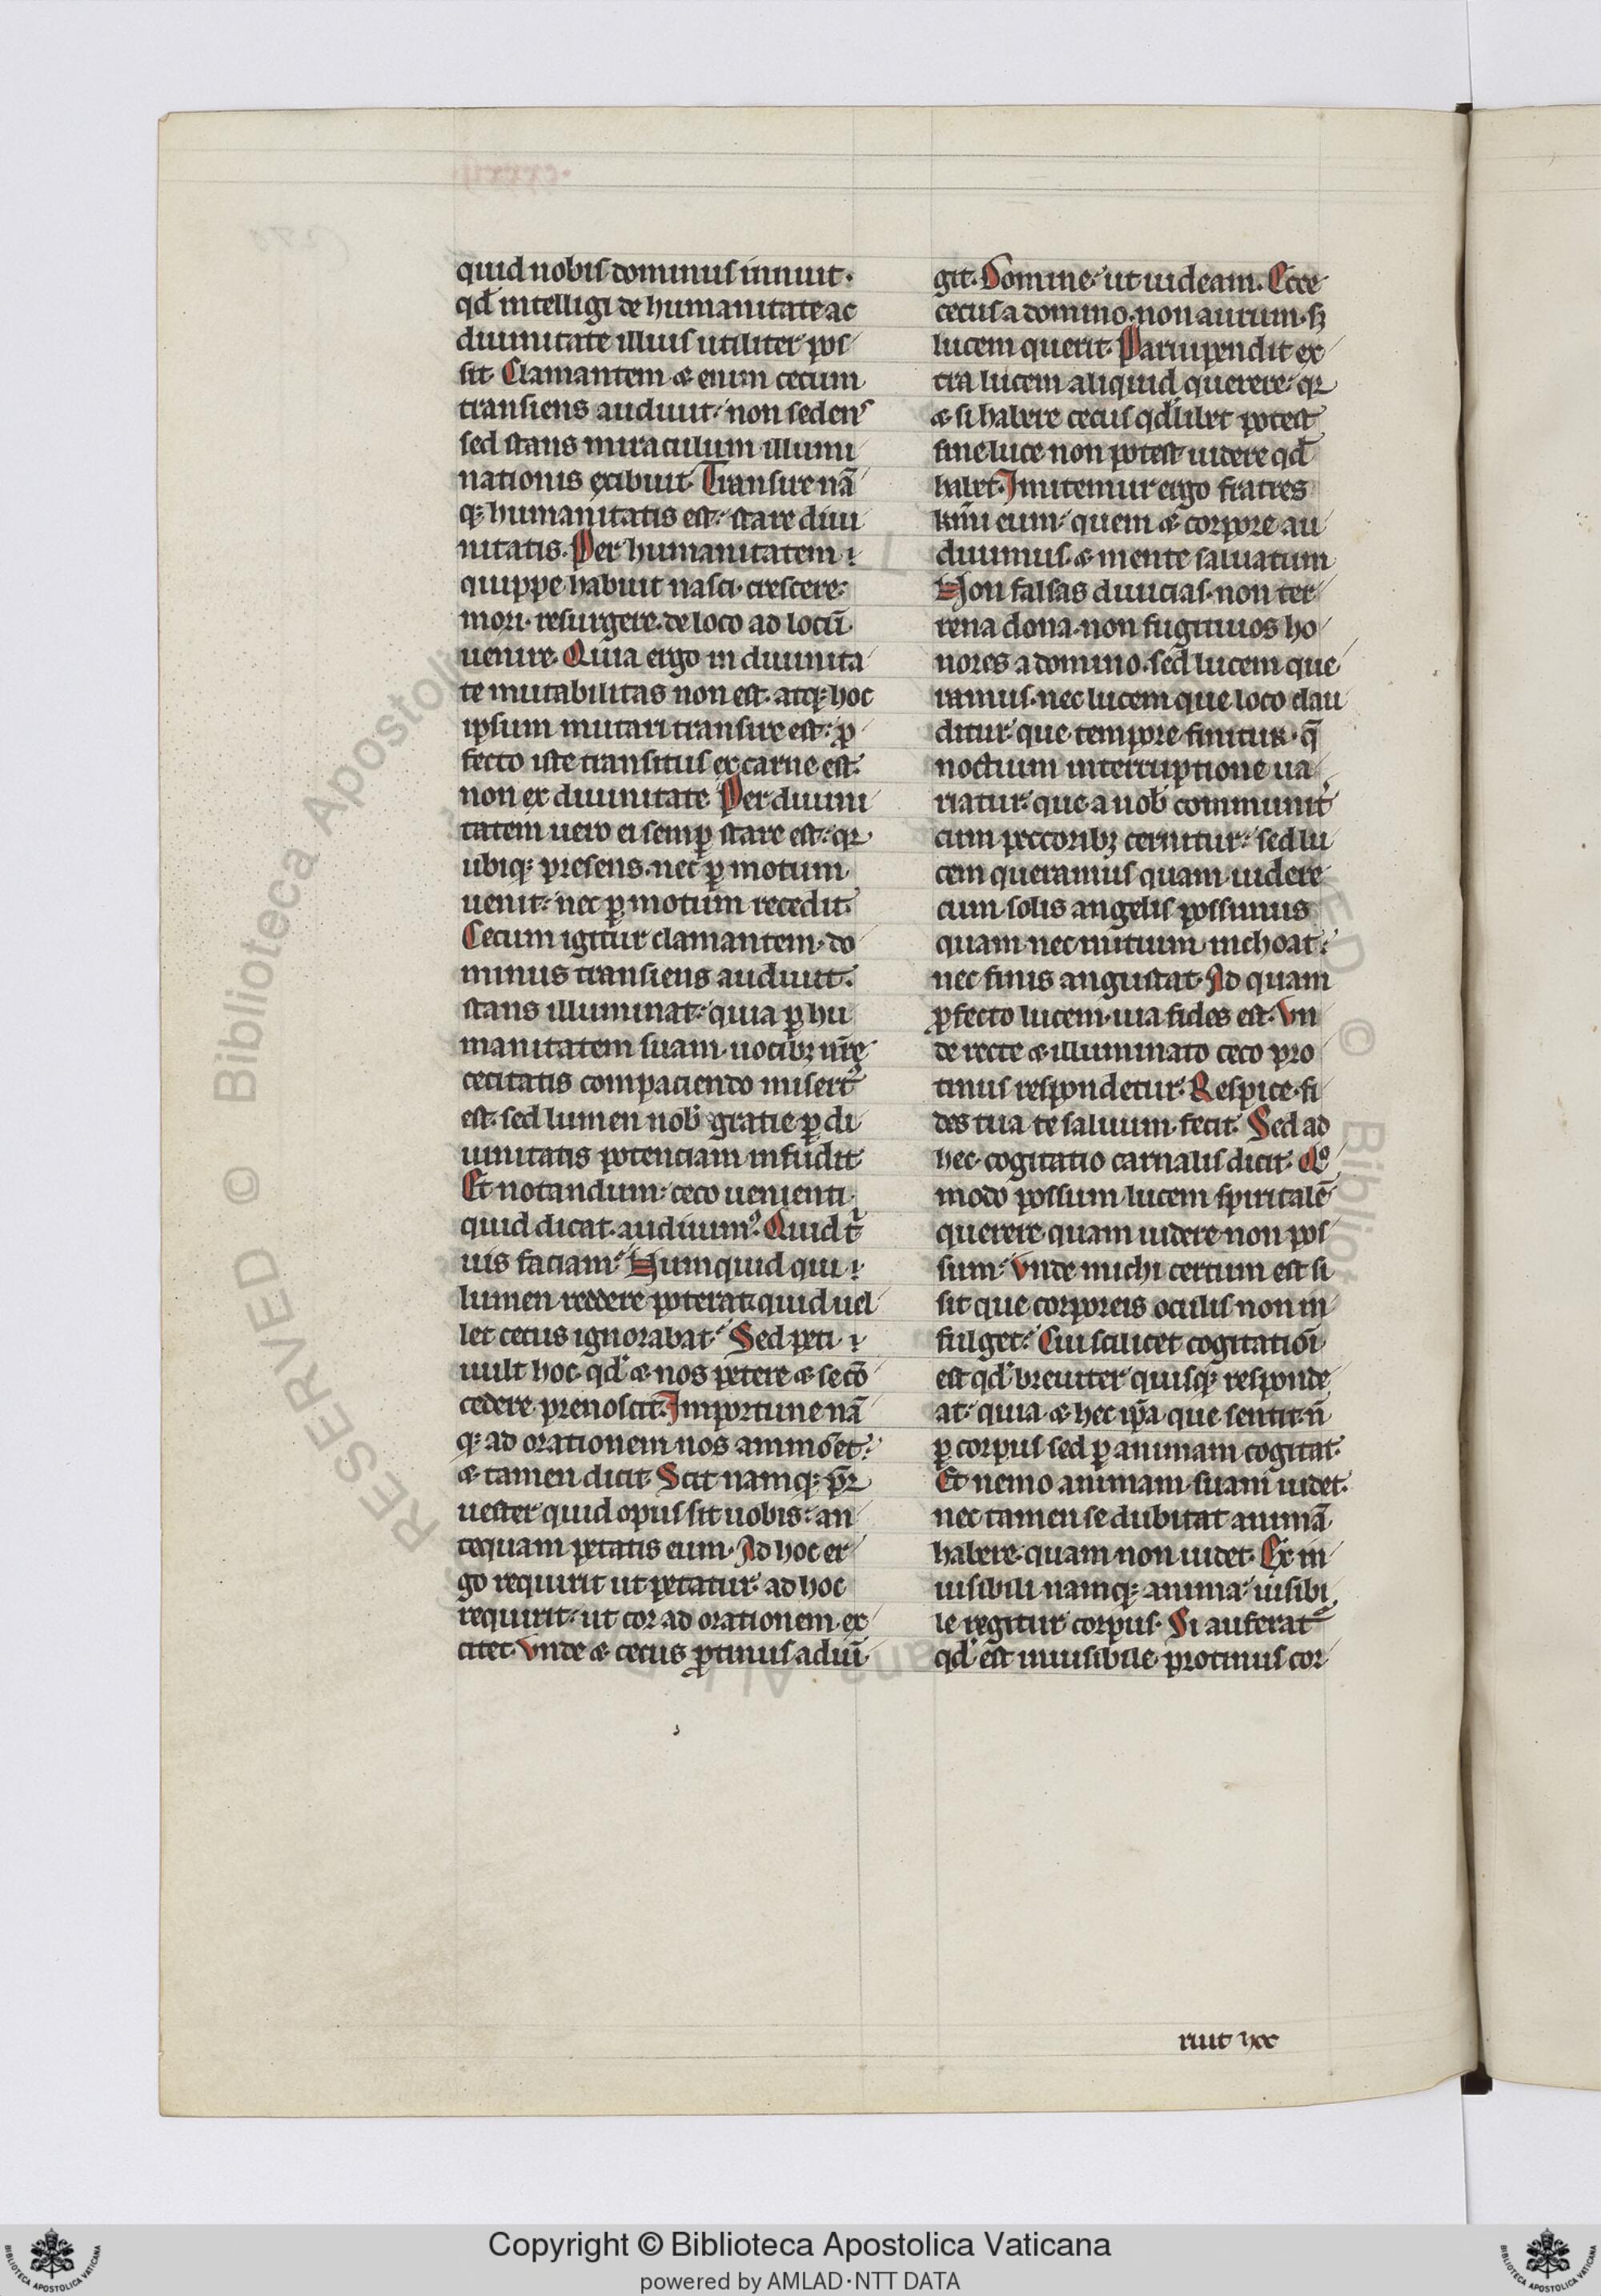 quid nobis dominus innuit·
qđ intelligi de humanitate ac
diuinitate illius utiliter pos
sit· Clamantem & enim cecum
transiens audiuit· non sedens
sed stans miraculum illumi
nationis exibuit· Transire nã
q; humanitatis est· stare diui
nitatis· Per humanitatem
quippe habuit nasci· crescere·
mori· resurgere· de loco ad locũ
uenire· Quia ergo in diuinita
te mutabilitas non est· atq; hoc
ipsum mutari transire est· ꝓ
fecto iste transitus ex carne est·
non ex diuinitate· Per diuini
tatem uero ei semꝑ stare est· qꝛ
ubiq; presens· nec ꝑ motum
uenit· nec ꝑ motum recedit·
Cecum igitur clamantem· do
minus transiens audiuit·
stans illuminat· quia ꝑ hu
manitatem suam· uocibꝫ nr̃ę
cecitatis compaciendo misert᷒
est· sed lumen nob̾ gratie ꝑ di
uinitatis potenciam infudit·
Et notandum· ceco uenienti
quid dicat· audiuim᷒· Quid t̾
uis faciam· Numquid qui
lumen reddere poterat· quid uel
let cecus ignorabat· Sed peti
uult hoc· qđ & nos petere & se cõ
cedere prenoscit· Importune nã
q; ad orationem nos ammonet·
& tamen dicit· Scit namq; pr̃
uester quid opus sit uobis· an
tequam petatis eum· Ad hoc er
go requirit ut petatur· ad hoc
requirit· ut cor ad orationem ex
citet· Vnde & cecus ꝓtinus adiũ
git· Domine· ut uideam· Ecce
cecus a domino· non aurum· sꝫ
lucem querit· Paruipendit ex
tra lucem aliquid querere· qꝛ
& si habere cecus qđlibet potest
sine luce non potest uidere qđ
habet· Imitemur ergo fratres
kmi eum· quem & corpore au
diuimus· & mente saluatum
Non falsas diuicias· non ter
rena dona· non fugitiuos ho
nores a domino· sed lucem que
ramus· nec lucem que loco clau
ditur· que tempore finitur· q̃
noctium interruptione ua
riatur· que a nob̾ communit̾
cum peccoribꝫ cernitur· sed lu
cem queramus quam uidere
cum solis angelis possimus
quam nec initium inchoat·
nec finis angustat· Ad quam
ꝓfecto lucem· uia fides est· Vn
de recte & illuminato ceco pro
tinus respondetur· Respice· fi
des tua te saluum fecit· Sed ad
hec· cogitatio carnalis dicit· Qͦ
modo possum lucem spiritalẽ
querere quam uidere non pos
sum· Vnde michi certum est si
sit que corporeis oculis non in
fulget· Cui scilicet cogitatiõi
est qđ breuiter quisq; responde
at· quia & hec ip̃a que sentit· ñ
ꝑ corpus sed ꝑ animam cogitat·
Et nemo animam suam uidet·
nec tamen se dubitat animã
habere· quam non uidet· Ex in
uisibili namq; anima· uisibi
le regitur corpus· Si auferat᷑
qđ est inuisibile· protinus cor
ruit hoc
Copyright © Biblioteca Apostolica Vaticana
powered by AMLAD·NTT DATA